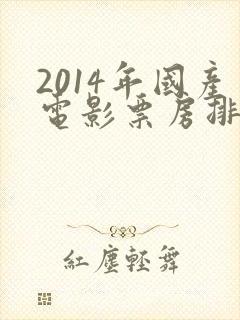 2014年國產
電影票房排
紅塵輕舞